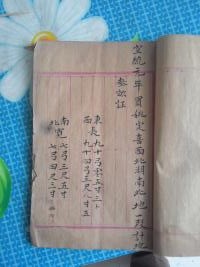 宣統元年買姚定喜西北胡南北地一段計地
參畝征
東長九十弓零五寸二
西 九十四弓三尺八寸五
南 七弓三尺五寸
北寬 七弓四尺三寸